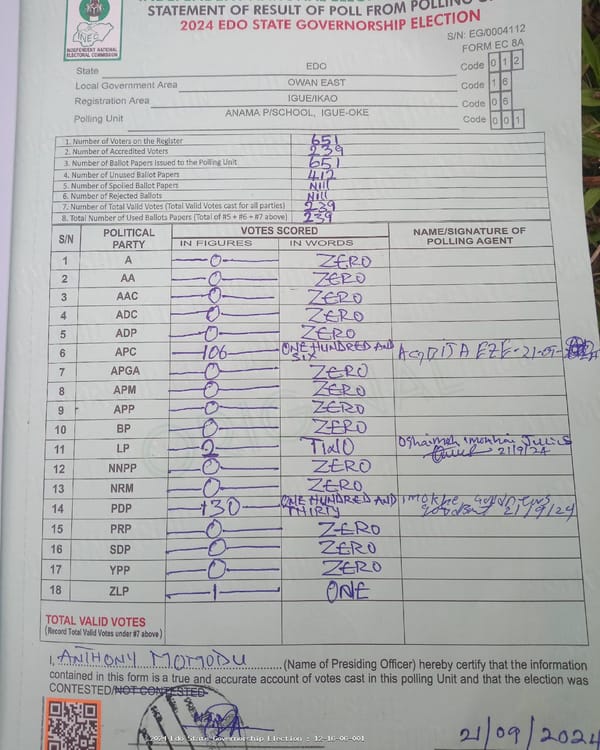 STATEMENT OF RESULT OF POLL FROM POLLING
2024 EDO STATE GOVERNORSHIP ELECTION
INEC
INDEPENDENT NATIONAL
ELECTORAL COMMISSION
S/N: EG/0004112
FORM EC 8A
State EDO Code 0 1 2
Local Government Area OWAN EAST Code 1 6
Registration Area IGUE/IKAO Code 0 6
Polling Unit ANAMA P/SCHOOL, IGUE-OKE Code 0 0 1
1. Number of Voters on the Register 651
2. Number of Accredited Voters 239
3. Number of Ballot Papers issued to the Polling Unit 651
4. Number of Unused Ballot Papers 412
5. Number of Spoiled Ballot Papers Nill
6. Number of Rejected Ballots Nill
7. Number of Total Valid Votes (Total Valid Votes cast for all parties) 239
8. Total Number of Used Ballots Papers (Total of #5 + #6 + #7 above) 239
S/N POLITICAL PARTY VOTES SCORED NAME/SIGNATURE OF POLLING AGENT
IN FIGURES IN WORDS
1 A 0 ZERO
2 AA 0 ZERO
3 AAC 0 ZERO
4 ADC 0 ZERO
5 ADP 0 ZERO
6 APC 106 ONE HUNDRED AND SIX
7 APGA 0 ZERO
8 APM 0 ZERO
9 APP 0 ZERO
10 BP 0 ZERO
11 LP 2 TWO 21/9/24
12 NNPP 0 ZERO
13 NRM 0 ZERO
14 PDP 130 ONE HUNDRED AND THIRTY 21/9/24
15 PRP 0 ZERO
16 SDP 0 ZERO
17 YPP 0 ZERO
18 ZLP 1 ONE
TOTAL VALID VOTES
(Record Total Valid Votes under #7 above)
I, ANTHONY MOMODU (Name of Presiding Officer) hereby certify that the information
contained in this form is a true and accurate account of votes cast in this polling Unit and that the election was
CONTESTED/NOT CONTESTED
2024 Edo State Governorship Election - 12-16-06-001
21/09/2024